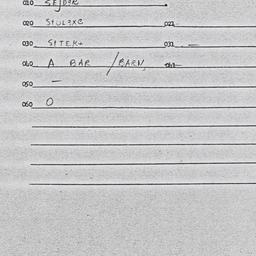 010 SEJDER
020 SIULEXE 022
030 SITEK+ 032 —
040 A BAR / BARN,
050 —
060 O